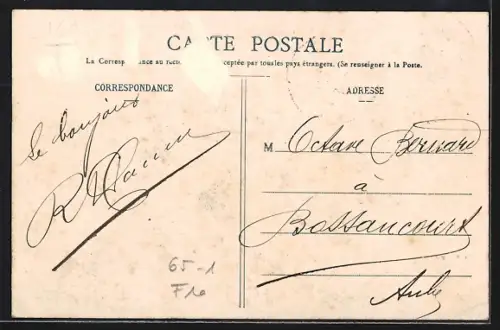 CARTE POSTALE
La Corresp ance au recto ceptée par tous les pays étrangers. (Se renseigner à la Poste.
CORRESPONDANCE
Le bonjour
65-1
F10
ADRESSE
M Octave Bernard
à
Bossancourt
Aube